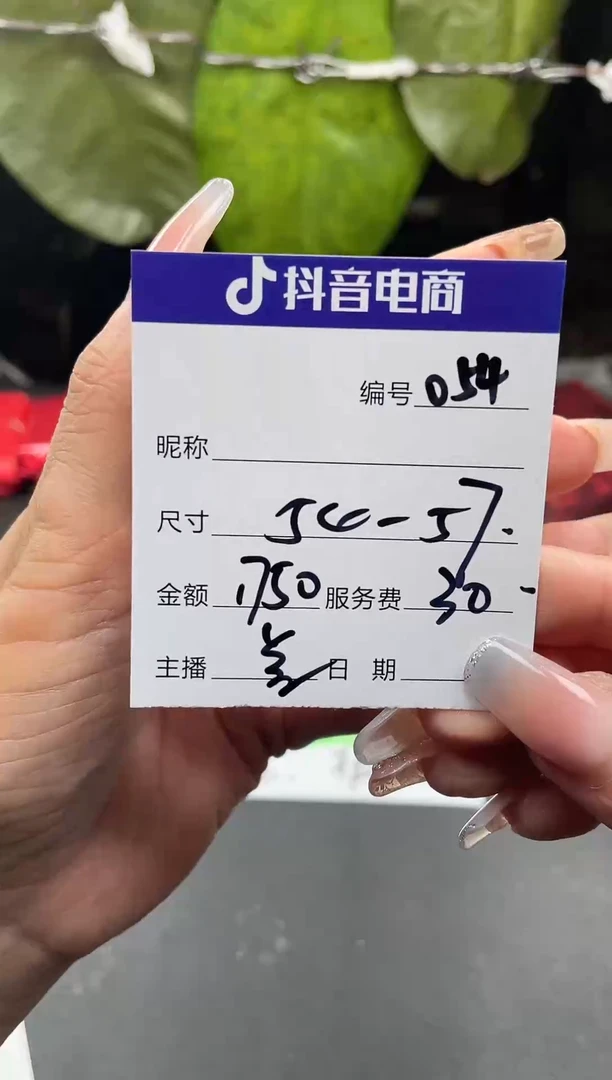 抖音电商
编号 054
昵称
尺寸 54-57.
金额 1750 服务费 30-
主播 日 期